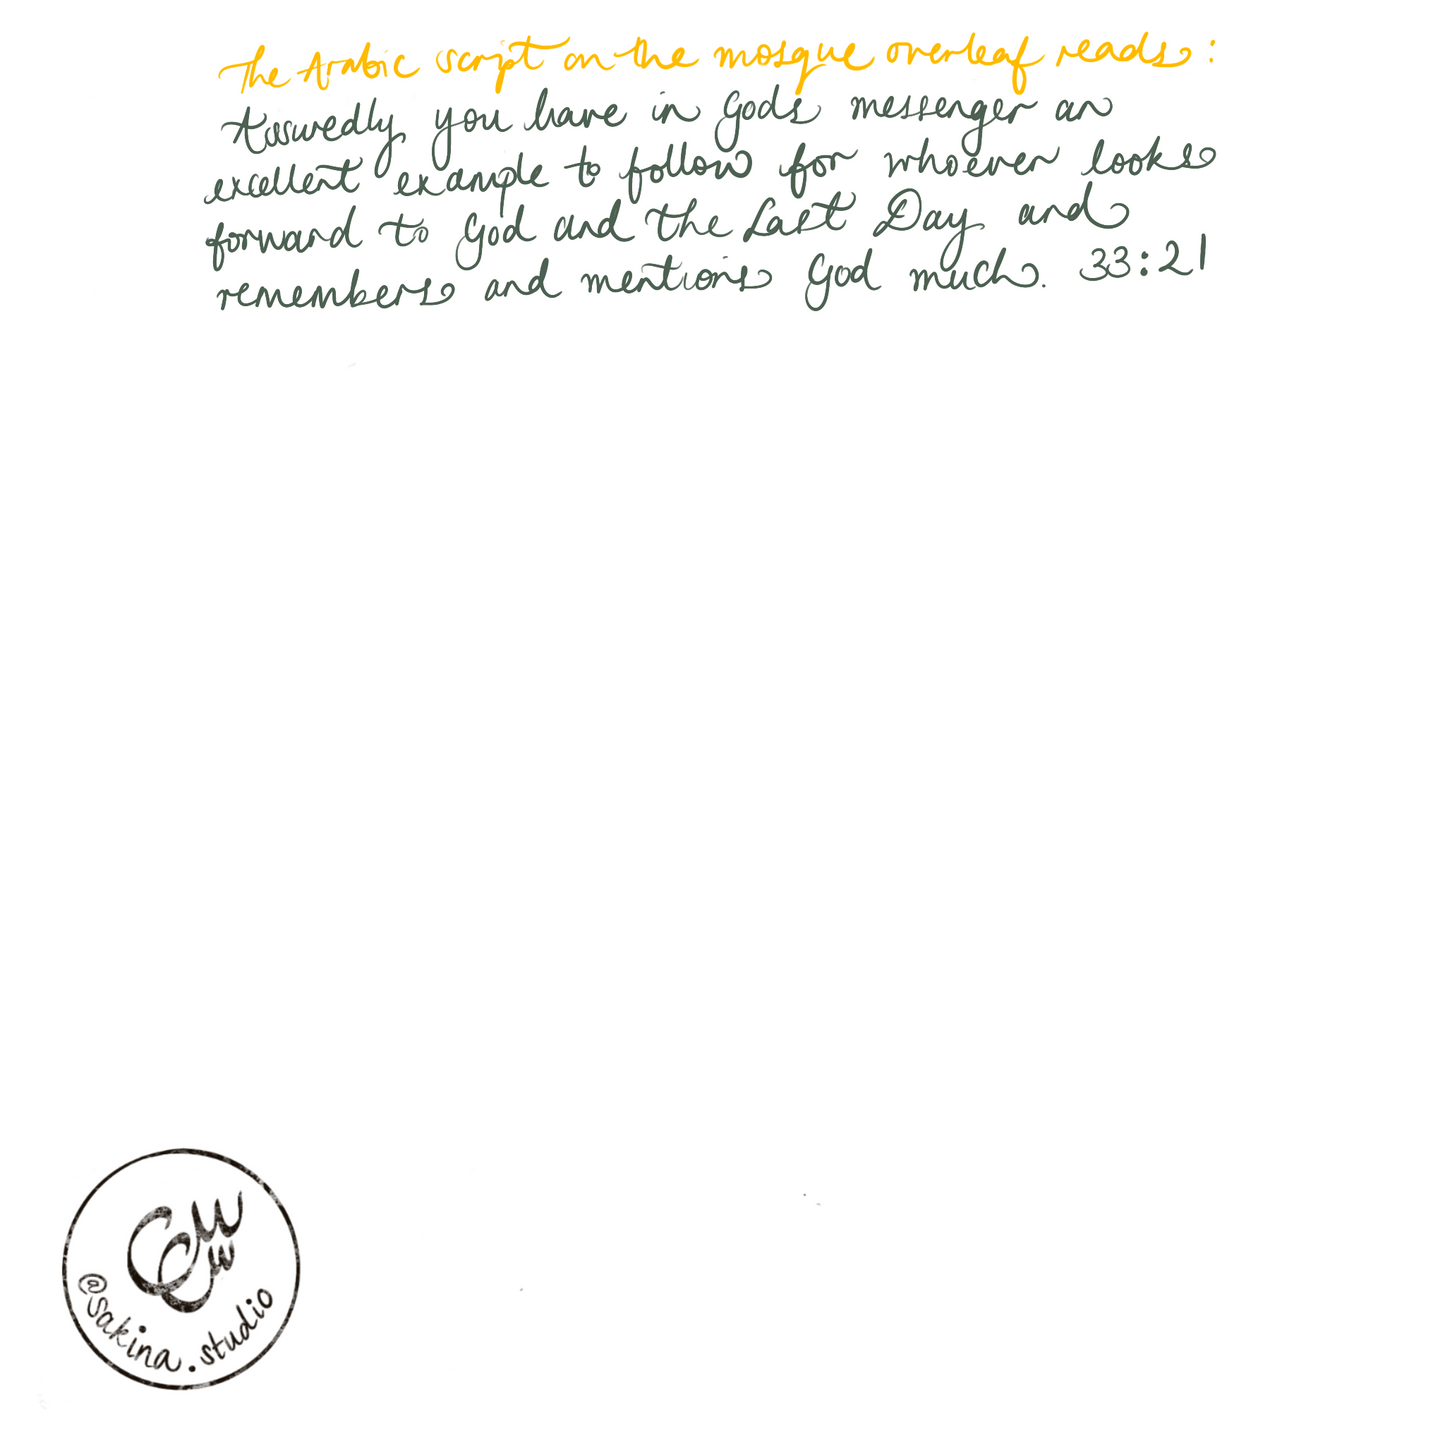 The Arabic script on the mosque overleaf reads:
Assuredly you have in Gods messenger an
excellent example to follow for whoever looks
forward to God and the Last Day and
remembers and mentions God much. 33:21
@sakina.studio